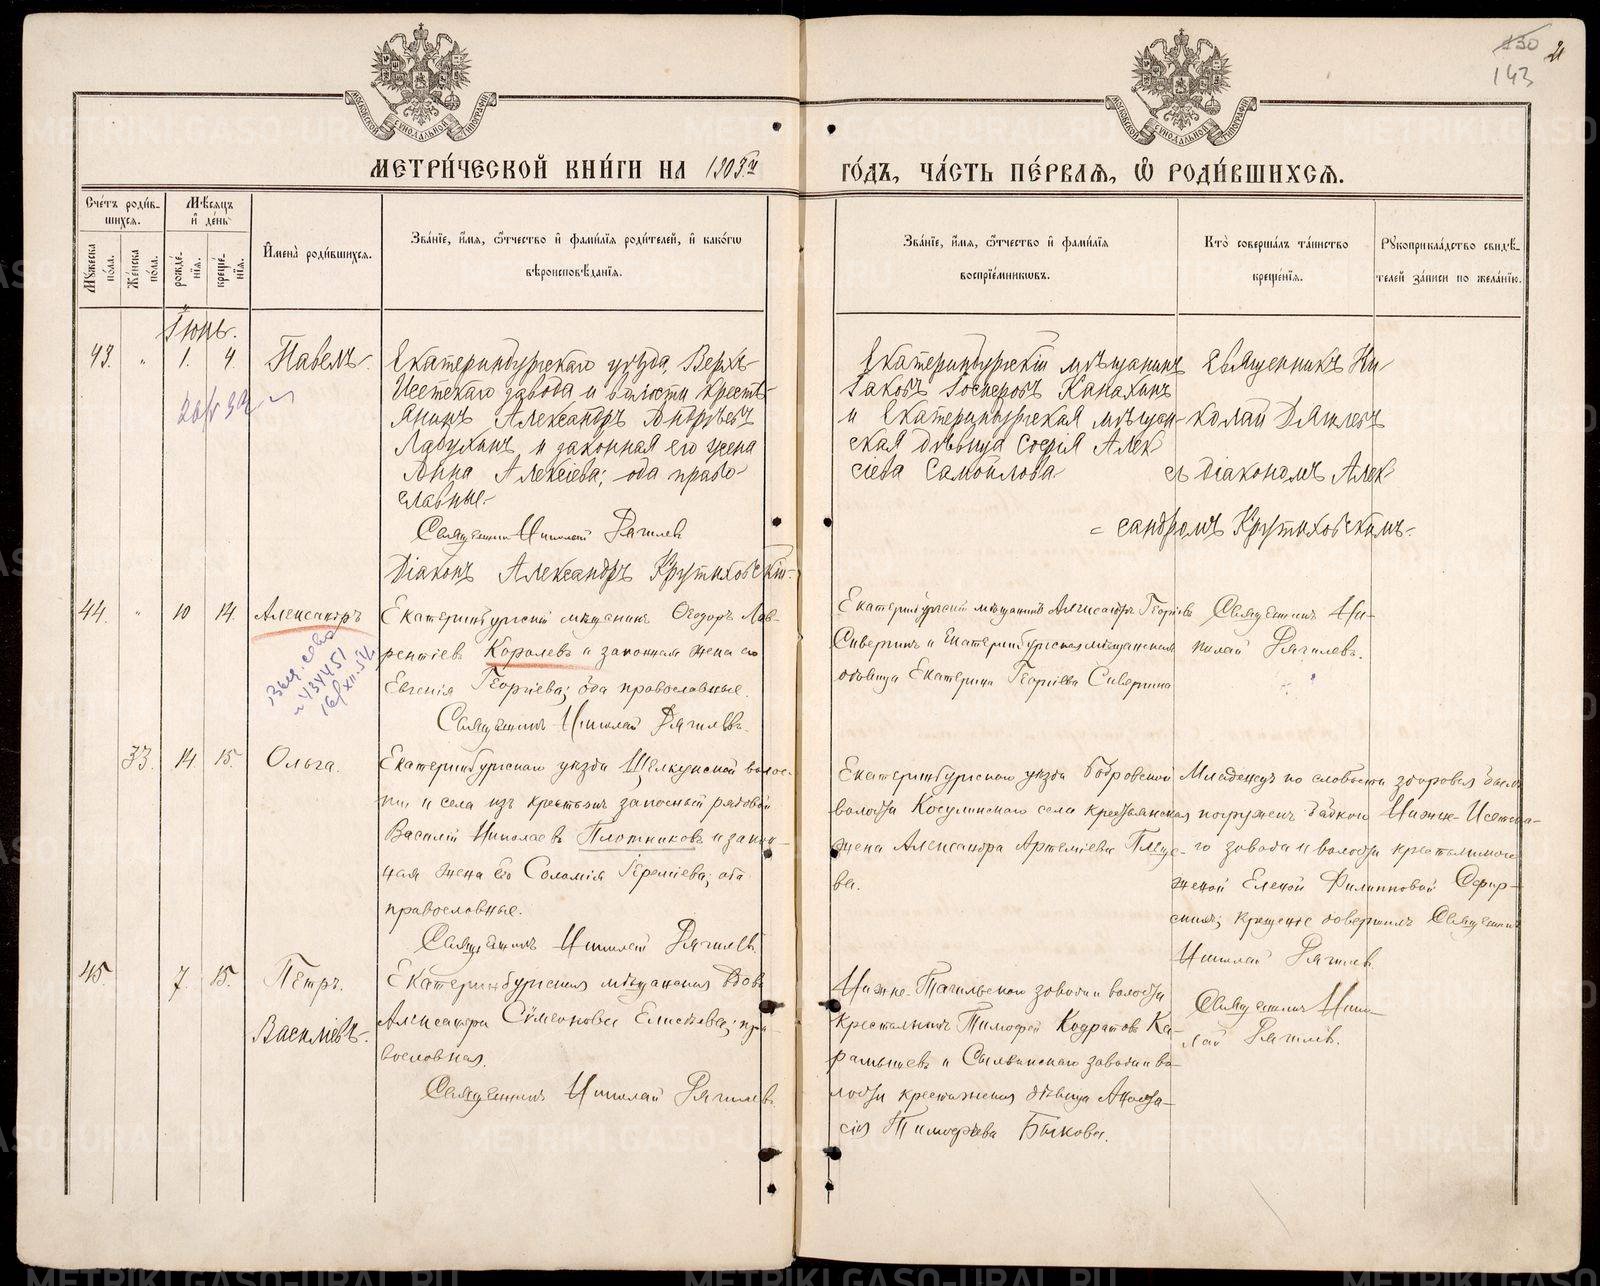 143
МЕТРИ́ЧЕСКОЙ КНИ́ГИ НА 1903.й ГО́ДЪ, ЧА́СТЬ ПЕ́РВАѦ, Ѡ РОДИ́ВШИХСѦ.
Сче́тъ роди́вшихсѧ.
Мѣ́сѧцъ и́ де́нь
Му́жеска по́ла.
Же́нска по́ла.
рожде́нїѧ.
креще́нїѧ.
И҆мена̀ роди́вшихсѧ.
Зва́нїе, и҆́мѧ, ѻ҆́тчество и҆ фами́лїѧ роди́телей, и҆ како́гѡ
вѣроисповѣ́данїѧ.
Зва́нїе, и҆́мѧ, ѻ҆́тчество и҆ фами́лїѧ
воспрїе́мникѡвъ.
Кто̀ соверша́лъ та́инство
креще́нїѧ.
Рꙋкоприкла́дство свидѣ́телей за́писи по жела́нїю.
Іюнь.
43. " 1. 4. Павелъ.
Екатеринбургскаго уѣзда, Верхъ-
Исетскаго завода и волости кресть-
янинъ Александръ Андреевъ
и законная его жена
Анна Алексіева; оба право-
славные.
Священникъ Николай Дягилевъ
Діаконъ Александръ Крутиховскій.
Екатеринбургскій мѣщанинъ
Іаковъ
и Екатеринбургская мѣщан-
ская дѣвица Софія Алек-
сіева Самойлова.
Священникъ Ни-
колай Дягилевъ
съ діакономъ Алек-
сандромъ Крутиховскимъ.
44. " 10 14. Александръ
Екатеринбургскій мѣщанинъ Ѳеодоръ Лав-
рентіевъ Королевъ и законная жена его
Евгенія Георгіева; оба православные.
Священникъ Николай Дягилевъ.
Екатеринбургскій мѣщанинъ Александръ Георгіевъ
Сиверинъ и Екатеринбургская мѣщанская
дѣвица Екатерина Георгіева Сиверина
Священникъ Ни-
колай Дягилевъ.
33. 14. 15. Ольга.
Екатеринбургскаго уѣзда Щелкунской волос-
ти и села изъ крестьянъ запасный рядовой
Василій Николаевъ Плотниковъ и закон-
ная жена его Соломія Іереміева; оба
православные.
Священникъ Николай Дягилевъ.
Екатеринбургскаго уѣзда Бобровской
волости Косулинскаго села крестьянская
жена Александра Артеміева
Младенецъ по слабости здоровья былъ
погруженъ бабкою Нижне-Исетска-
го завода и волости крестьянскою
женой Еленой Филипповой
крещеніе довершилъ Священникъ
Николай Дягилевъ.
45. 7. 15. Петръ.
Васильевъ.
Екатеринбургская мѣщанская вдова
Александра Сѵмеонова Елисѣева; пра-
вославная.
Священникъ Николай Дягилевъ.
Нижне-Тагильскаго завода и волости
крестьянинъ Тимофей Кодратовъ Ка-
рамышевъ и Сылвинскаго завода и во-
лости крестьянская дѣвица Анаста-
сія Тимофеева Быкова.
Священникъ Нико-
лай Дягилевъ.